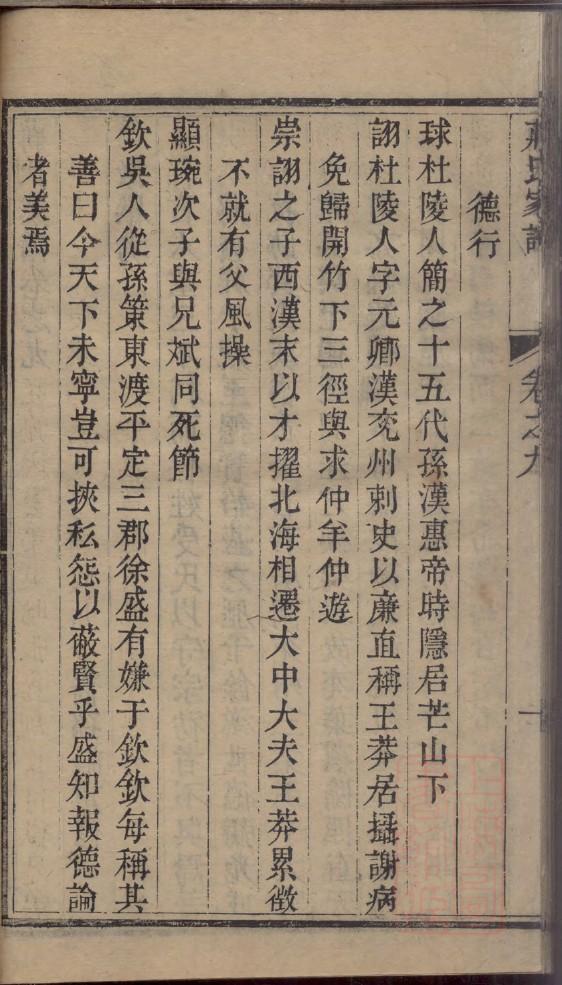 蔣氏家譜 卷之九
德行
球杜陵人簡之十五代孫漢惠帝時隱居芒山下
詡杜陵人字元卿漢兖州刺史以廉直稱王莽居攝謝病
免歸開竹下三徑與求仲羊仲遊
崇詡之子西漢末以才擢北海相遷大中大夫王莽累徵
不就有父風操
顯琬次子與兄斌同死節
欽吳人從孫策東渡平定三郡徐盛有嫌于欽欽每稱其
善曰今天下未寧豈可挾私怨以蔽賢乎盛知報德論
者美焉